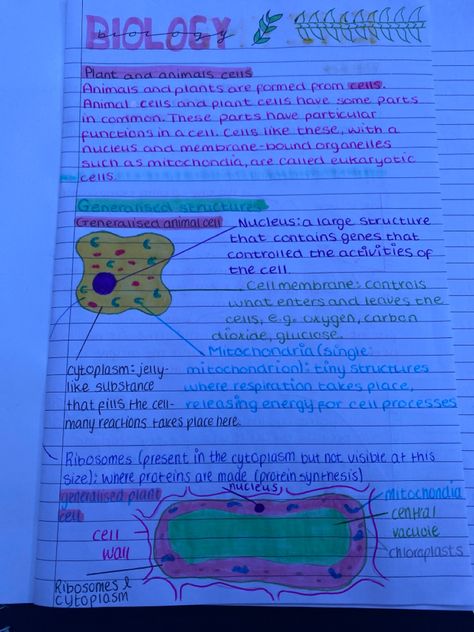 BIOLOGY
biology
Plant and animals cells
Animals and plants are formed from cells.
Animal cells and plant cells have some parts
in common. These parts have particular
functions in a cell. Cells like these, with a
nucleus and membrane-bound organelles
such as mitochondia, are called eukaryotic
cells.
Generalised structures
Generalised animal cell
Nucleus: a large structure
that contains genes that
controlled the activities of
the cell.
Cell membrane: controls
what enters and leaves the
cells, e.g. oxygen, carbon
dioxide, glucose.
Mitochondria (single:
mitochondrion): tiny structures
where respiration takes place,
releasing energy for cell processes
cytoplasm: jelly-
like substance
that fills the cell-
many reactions takes place here.
Ribosomes (present in the cytoplasm but not visible at this
size): where proteins are made (protein synthesis)
generalised plant
cell
nucleus
mitochondia
central
vacuole
chloroplasts
cell
wall
Ribosomes &
cytoplasm